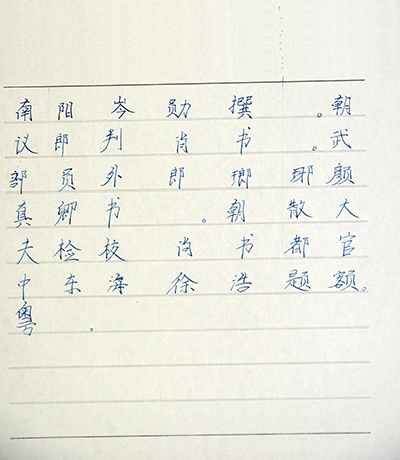 南阳岑勋撰。朝
议郎判尚书。武
部员外郎琅琊颜
真卿书。朝散大
夫检校尚书都官
中东海徐浩题额。
粤。